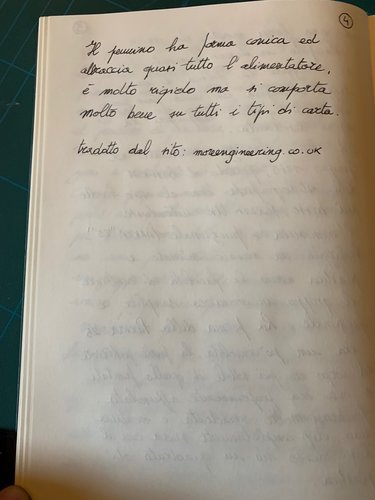 4
Il pennino ha forma conica ed
abbraccia quasi tutto l'alimentatore,
è molto rigido ma si comporta
molto bene su tutti i tipi di carta.
tradotto dal sito: moreengineering.co.uk